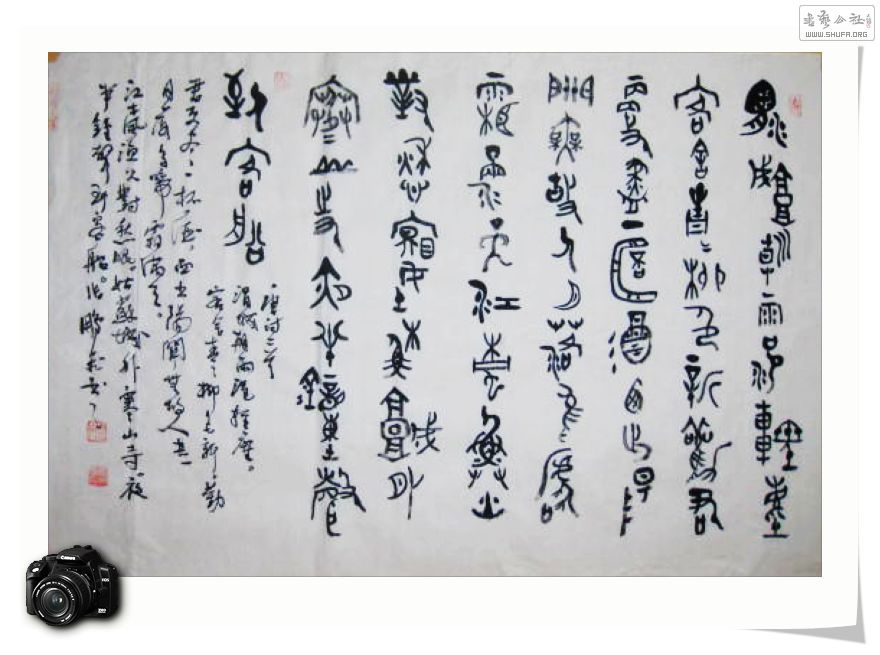 渭城朝雨浥輕塵
客舍青〻柳色新勸君
更盡一杯酒西出陽
關無故人月落烏啼
霜滿天江楓漁火
對愁眠姑蘇城外
寒山寺夜半鐘聲
到客船
唐詩二首
渭城朝雨浥輕塵。
客舍青〻柳色新。勸
君更尽一杯酒,西出陽關無故人
月落烏啼霜滿天。
江楓漁火對愁眠。姑蘇城外寒山寺。夜
半鐘聲到客船。鵬飛書
WWW.SHUFA.ORG
Canon
EOS